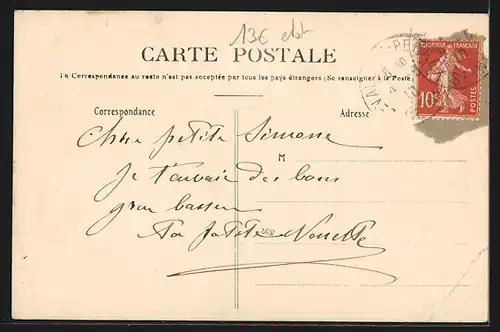 13€
CARTE POSTALE
La Correspondance au recto n'est pas acceptée par tous les pays étrangers (Se renseigner à la Poste)
RÉPUBLIQUE FRANÇAISE
10c
POSTES
Correspondance
Adresse
Chère petite Simone
M
Je t'envoie des bons
gros baisers
Ta petite
268